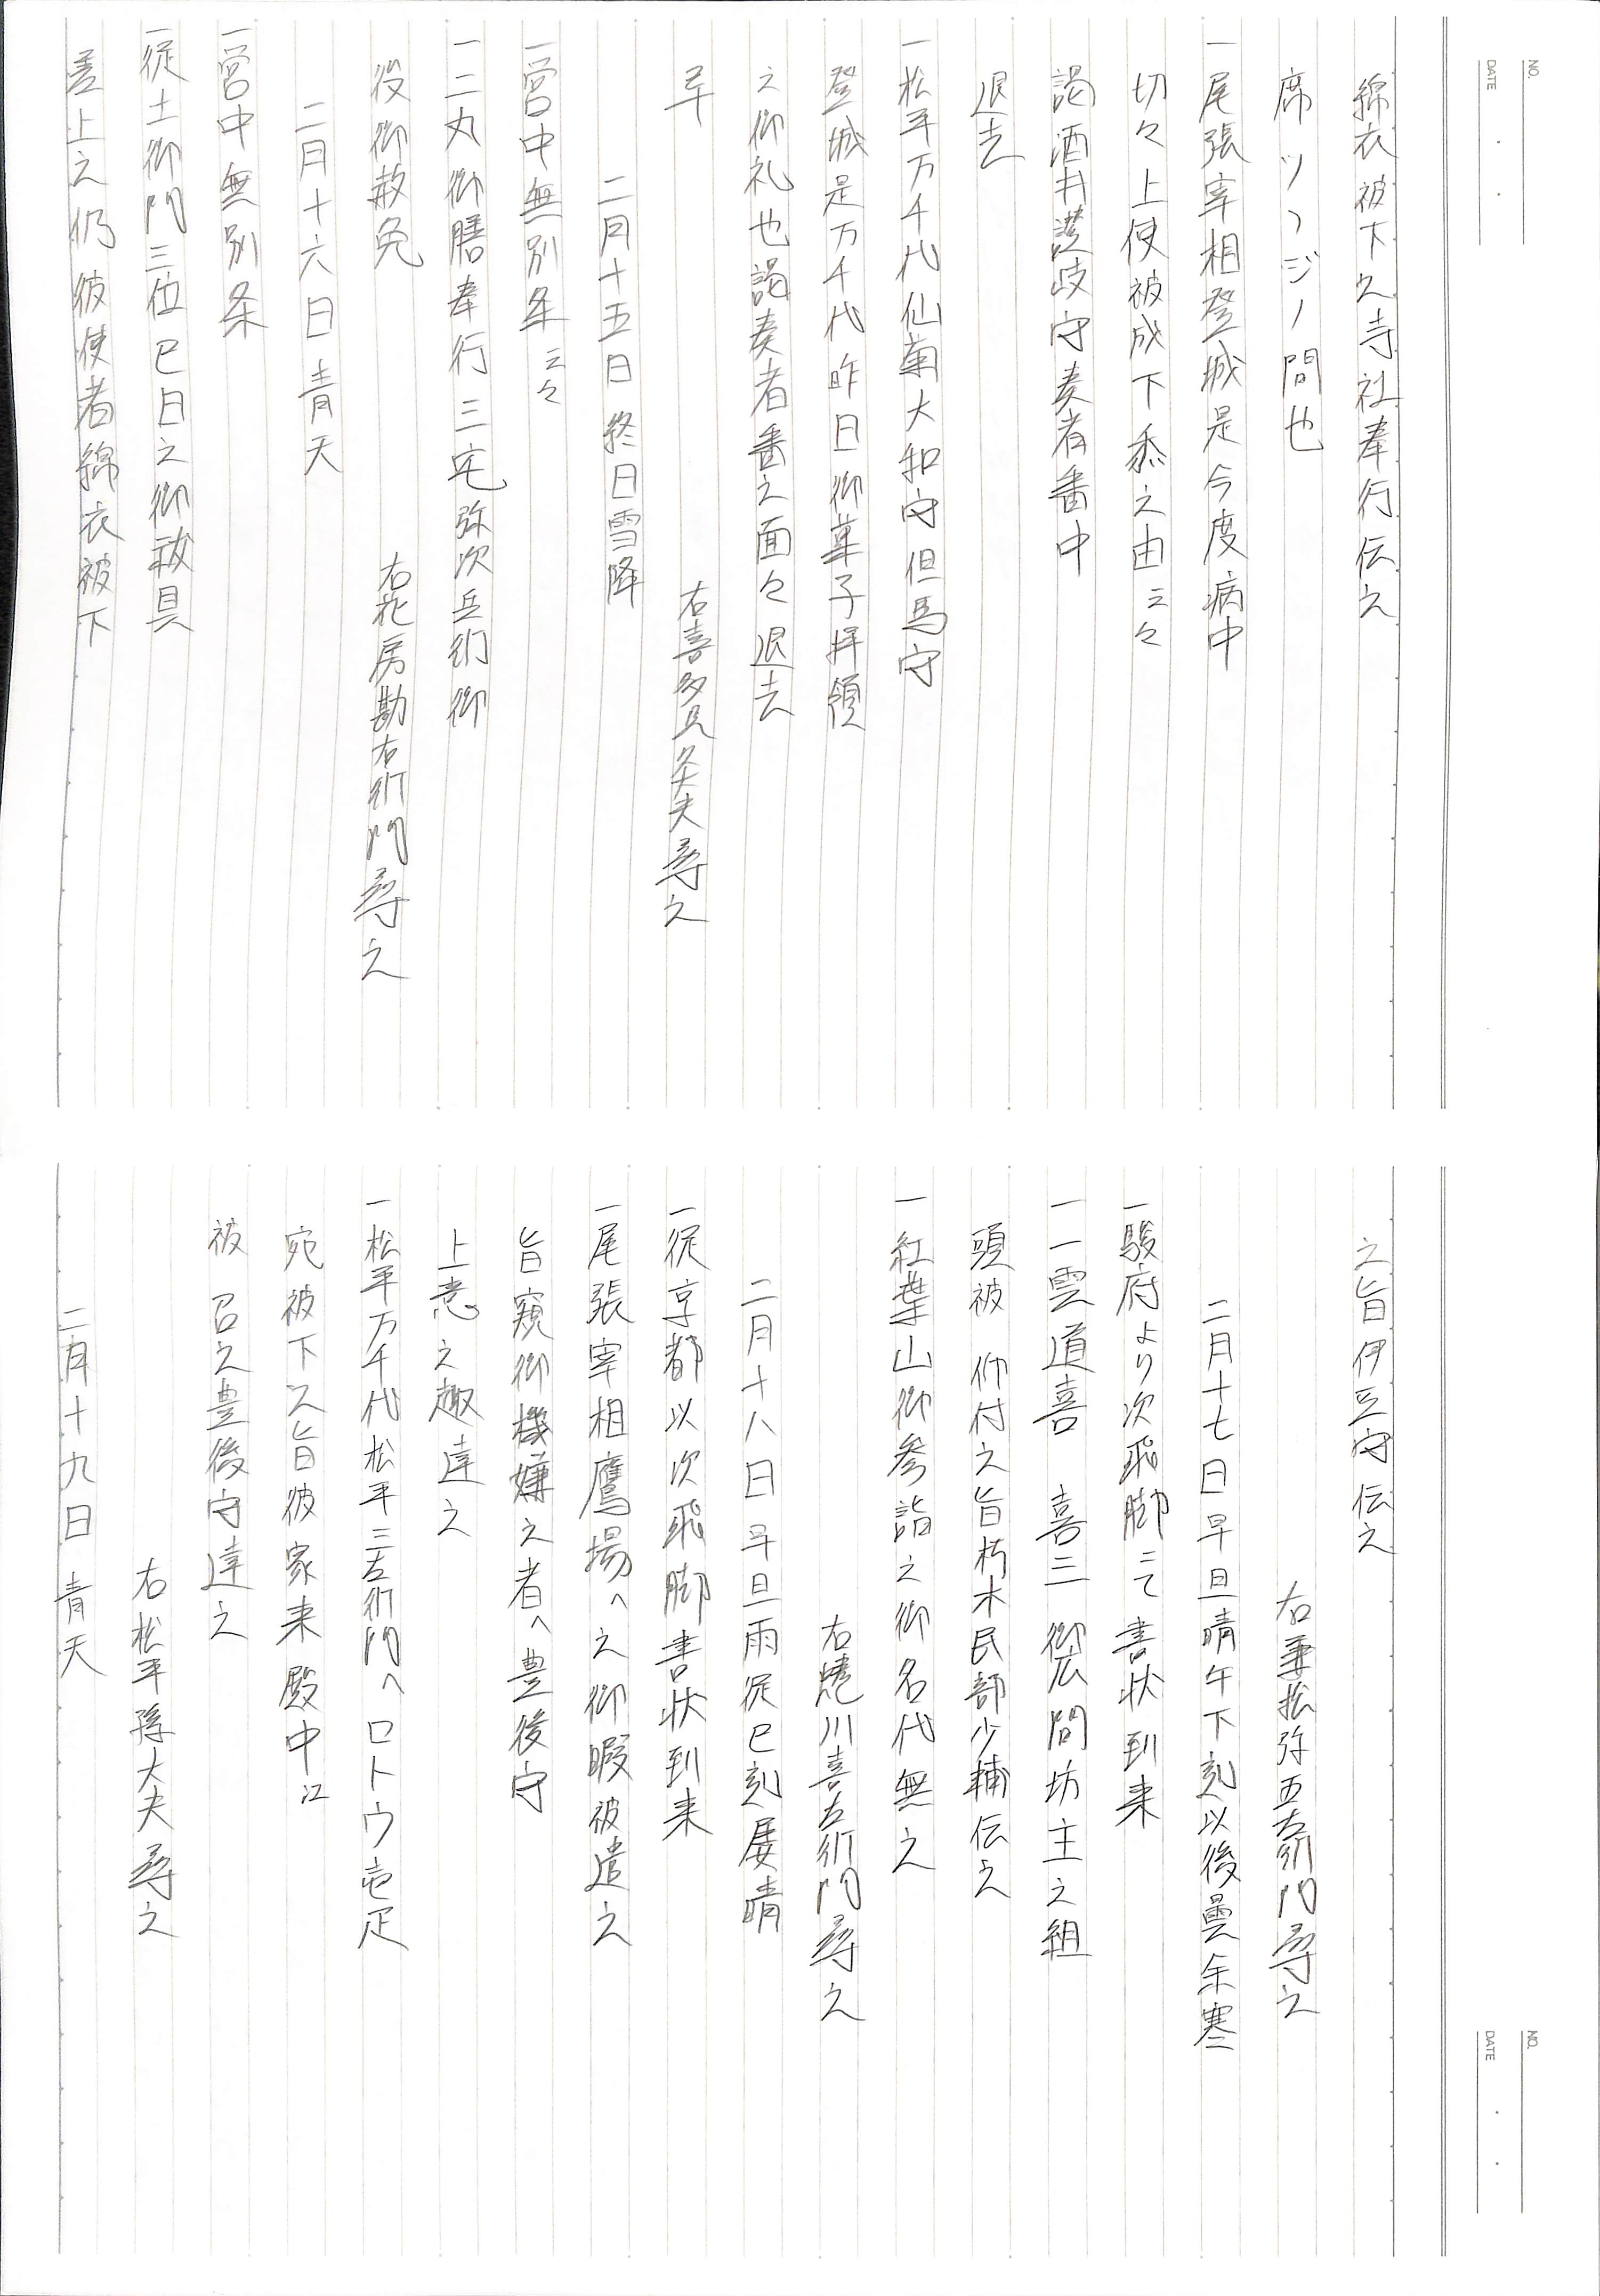 NO.
DATE
綿衣被下之寺社奉行伝之
席ソフジノ間也
一尾張宰相登城是今度病中
切々上使被成下忝之由云々
謁酒井讃岐守奏者番中
退去
一松平万千代仙菊大和守但馬守
登城是万千代昨日御菓子拝領
之御礼也謁奏者番之面々退去
畢
右喜多見久太夫尋之
二月十五日終日雪降
一営中無別条云々
一二丸御膳奉行三宅弥次兵衛御
役御赦免
右花房勘右衛門尋之
二月十六日青天
一営中無別条
一従土御門三位巳日之御祓具
差上之仍彼使者綿衣被下
NO.
DATE
之旨伊豆守伝之
右兼松弥五左衛門尋之
二月十七日早旦晴午下刻以後曇余寒
一駿府より次飛脚ニて書状到来
一一雲道喜 喜三 御広間坊主之組
頭被 仰付之旨朽木民部少輔伝之
一紅葉山御参詣之御名代無之
右蜷川喜左衛門尋之
二月十八日早旦雨従巳刻属晴
一従京都以次飛脚書状到来
一尾張宰相鷹場へ之御暇被遣之
旨窺御機嫌之者へ豊後守
上意之趣達之
一松平万千代松平三左衛門へロトウ壱疋
宛被下之旨彼家来殿中江
被 召之豊後守達之
右松平隼大夫尋之
二月十九日 青天